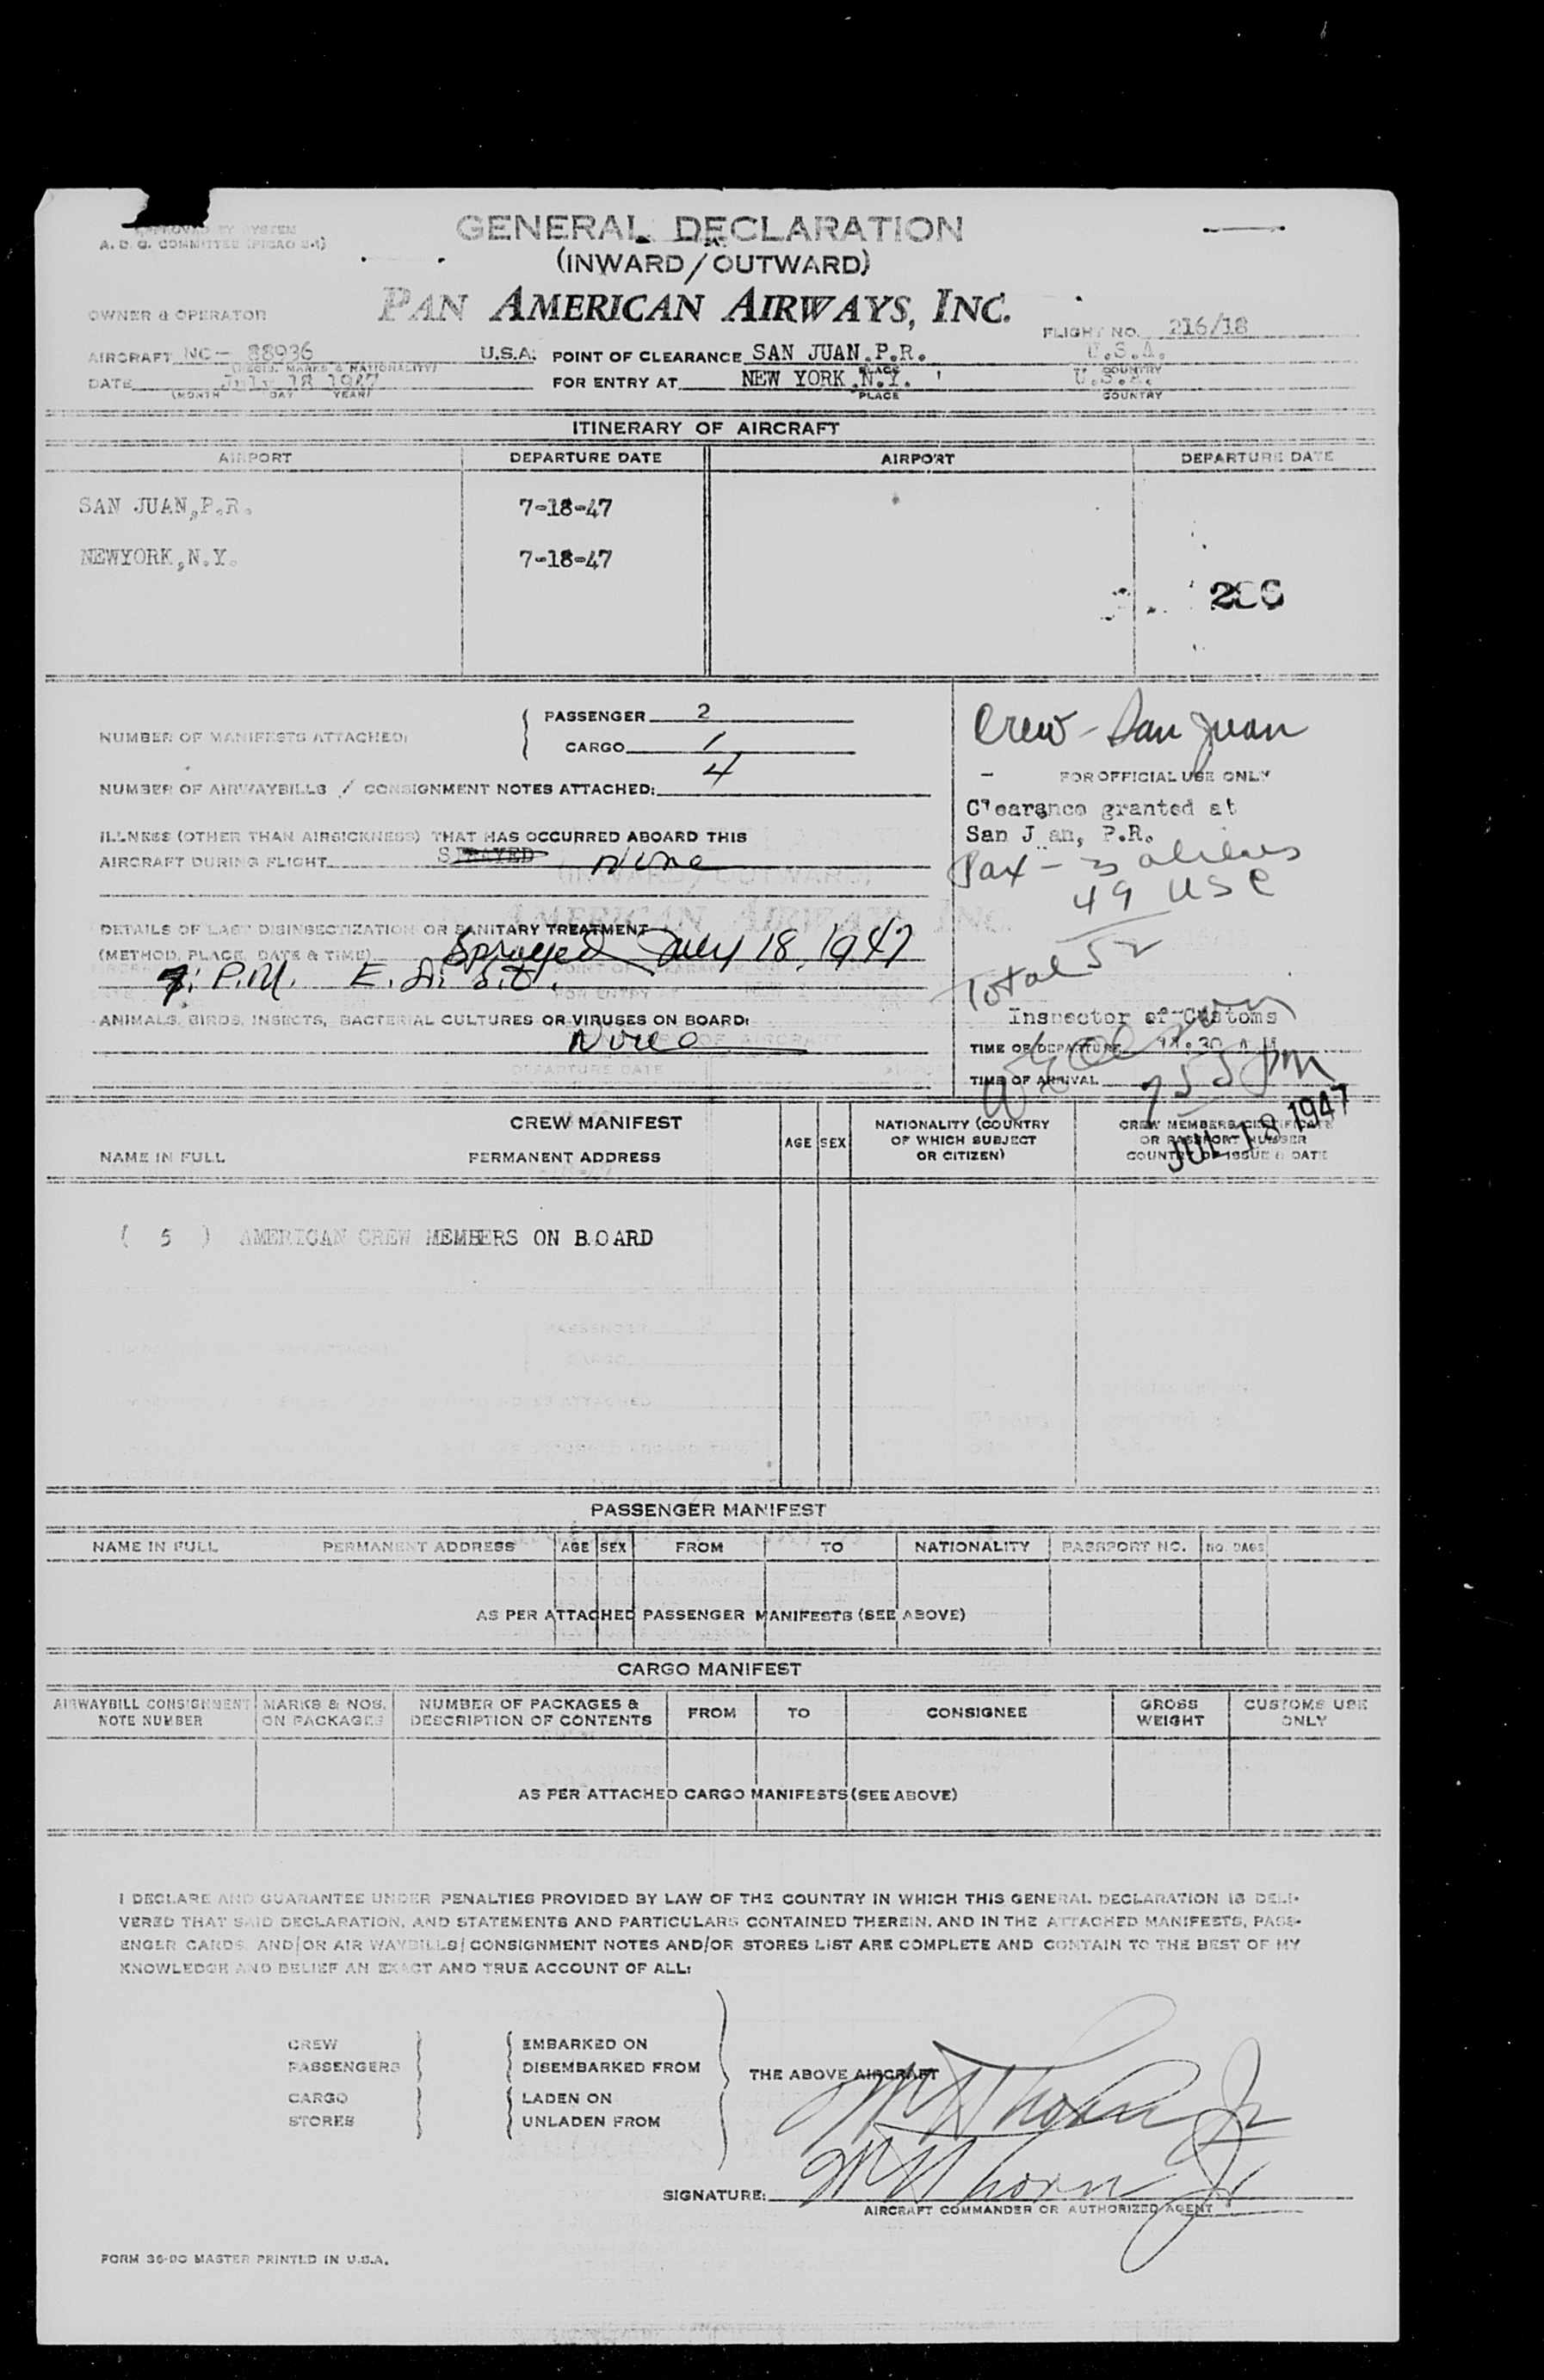 APPROVED BY SYSTEM
A. D. G. COMMITTEE (PICAO S-1)
GENERAL DECLARATION
(INWARD/OUTWARD)
PAN AMERICAN AIRWAYS, INC.
OWNER & OPERATOR
FLIGHT NO. 216/18
AIRCRAFT NC- 88936 U.S.A. POINT OF CLEARANCE SAN JUAN,P.R. U.S.A.
(REGIS. MARKS & NATIONALITY) PLACE COUNTRY
DATE July 18 1947 FOR ENTRY AT NEW YORK,N.Y. U.S.A.
(MONTH DAY YEAR) PLACE COUNTRY
ITINERARY OF AIRCRAFT
AIRPORT DEPARTURE DATE AIRPORT DEPARTURE DATE
SAN JUAN,P.R. 7-18-47
NEWYORK,N.Y. 7-18-47
NUMBER OF MANIFESTS ATTACHED: PASSENGER 2
CARGO 1
NUMBER OF AIRWAYBILLS / CONSIGNMENT NOTES ATTACHED: 4
ILLNESS (OTHER THAN AIRSICKNESS) THAT HAS OCCURRED ABOARD THIS
AIRCRAFT DURING FLIGHT SPRAYED None
DETAILS OF LAST DISINSECTIZATION OR SANITARY TREATMENT
(METHOD, PLACE, DATE & TIME) Sprayed July 18, 1947
7: P.M. E.
ANIMALS, BIRDS, INSECTS, BACTERIAL CULTURES OR VIRUSES ON BOARD:
None
Crew - San Juan
FOR OFFICIAL USE ONLY
Clearance granted at
San J an, P.R.
Pax - 3 aliens
49 USC
Total 52
Inspector of Customs
TIME OF DEPARTURE 11:30 A M
TIME OF ARRIVAL 755 pm
JUL 18 1947
CREW MANIFEST
NAME IN FULL PERMANENT ADDRESS AGE SEX
NATIONALITY (COUNTRY
OF WHICH SUBJECT
OR CITIZEN)
CREW MEMBERS CERTIFICATE
OR PASSPORT NUMBER
COUNTRY OF ISSUE & DATE
( 5 ) AMERICAN CREW MEMBERS ON BOARD
PASSENGER MANIFEST
NAME IN FULL PERMANENT ADDRESS AGE SEX FROM TO NATIONALITY PASSPORT NO. NO. BAGS
AS PER ATTACHED PASSENGER MANIFESTS (SEE ABOVE)
CARGO MANIFEST
AIRWAYBILL CONSIGNMENT
NOTE NUMBER
MARKS & NOS.
ON PACKAGES
NUMBER OF PACKAGES &
DESCRIPTION OF CONTENTS
FROM TO CONSIGNEE
GROSS
WEIGHT
CUSTOMS USE
ONLY
AS PER ATTACHED CARGO MANIFESTS (SEE ABOVE)
I DECLARE AND GUARANTEE UNDER PENALTIES PROVIDED BY LAW OF THE COUNTRY IN WHICH THIS GENERAL DECLARATION IS DELI-
VERED THAT SAID DECLARATION, AND STATEMENTS AND PARTICULARS CONTAINED THEREIN, AND IN THE ATTACHED MANIFESTS, PASS-
ENGER CARDS, AND/OR AIR WAYBILLS/CONSIGNMENT NOTES AND/OR STORES LIST ARE COMPLETE AND CONTAIN TO THE BEST OF MY
KNOWLEDGE AND BELIEF AN EXACT AND TRUE ACCOUNT OF ALL:
CREW EMBARKED ON
PASSENGERS DISEMBARKED FROM
THE ABOVE AIRCRAFT
CARGO LADEN ON
STORES UNLADEN FROM
SIGNATURE:
AIRCRAFT COMMANDER OR AUTHORIZED AGENT
FORM 36-DC MASTER PRINTED IN U.S.A.